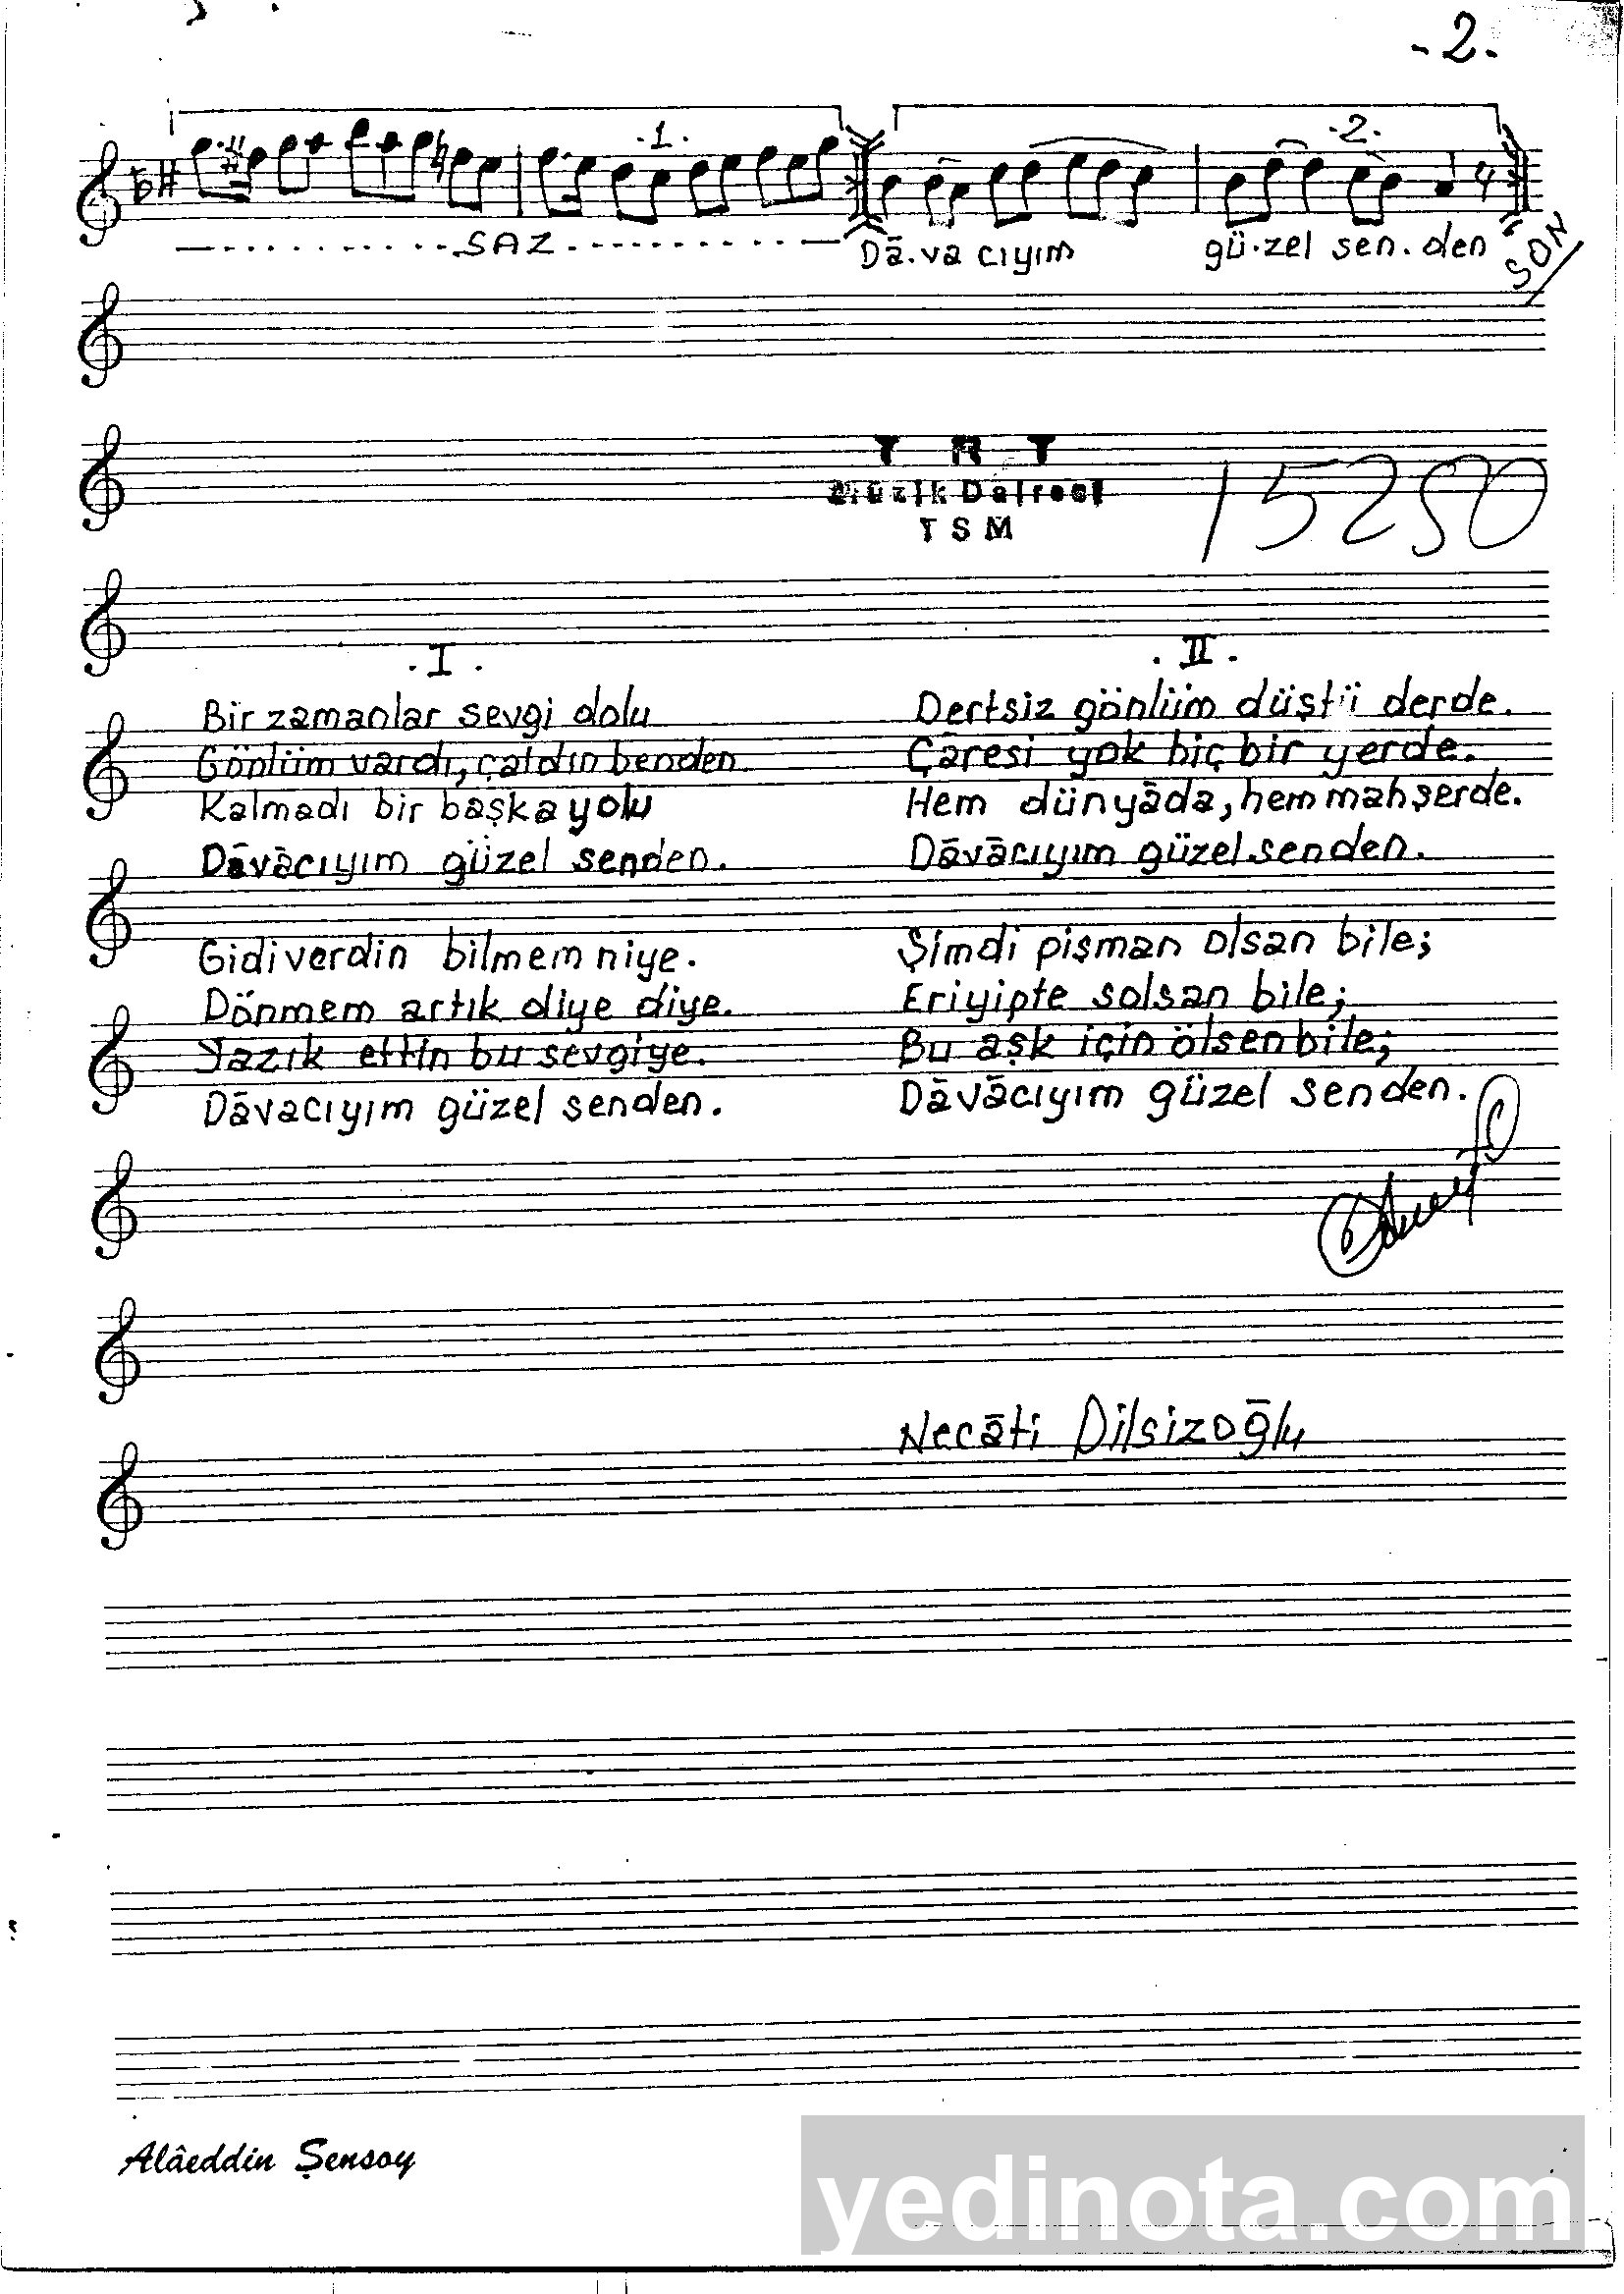 -2-
.1.
.2.
SAZ
Dā.va cıyım gü.zel sen.den
SON
T R T
Müzik Dairesi
T S M
15250
.I.
Bir zamanlar sevgi dolu
Gönlüm vardı, çaldın benden
Kalmadı bir başka yolu
Dāvācıyım güzel senden.
Gidiverdin bilmem niye.
Dönmem artık diye diye.
Yazık ettin bu sevgiye.
Dāvacıyım güzel senden.
.II.
Dertsiz gönlüm düştü derde.
Çāresi yok hiç bir yerde.
Hem dünyāda, hem mahşerde.
Dāvācıyım güzel senden.
Şimdi pişman olsan bile;
Eriyipte solsan bile;
Bu aşk için ölsen bile;
Dāvācıyım güzel senden.
Necāti Dilsizoğlu
Alâeddin Şensoy
yedinota.com